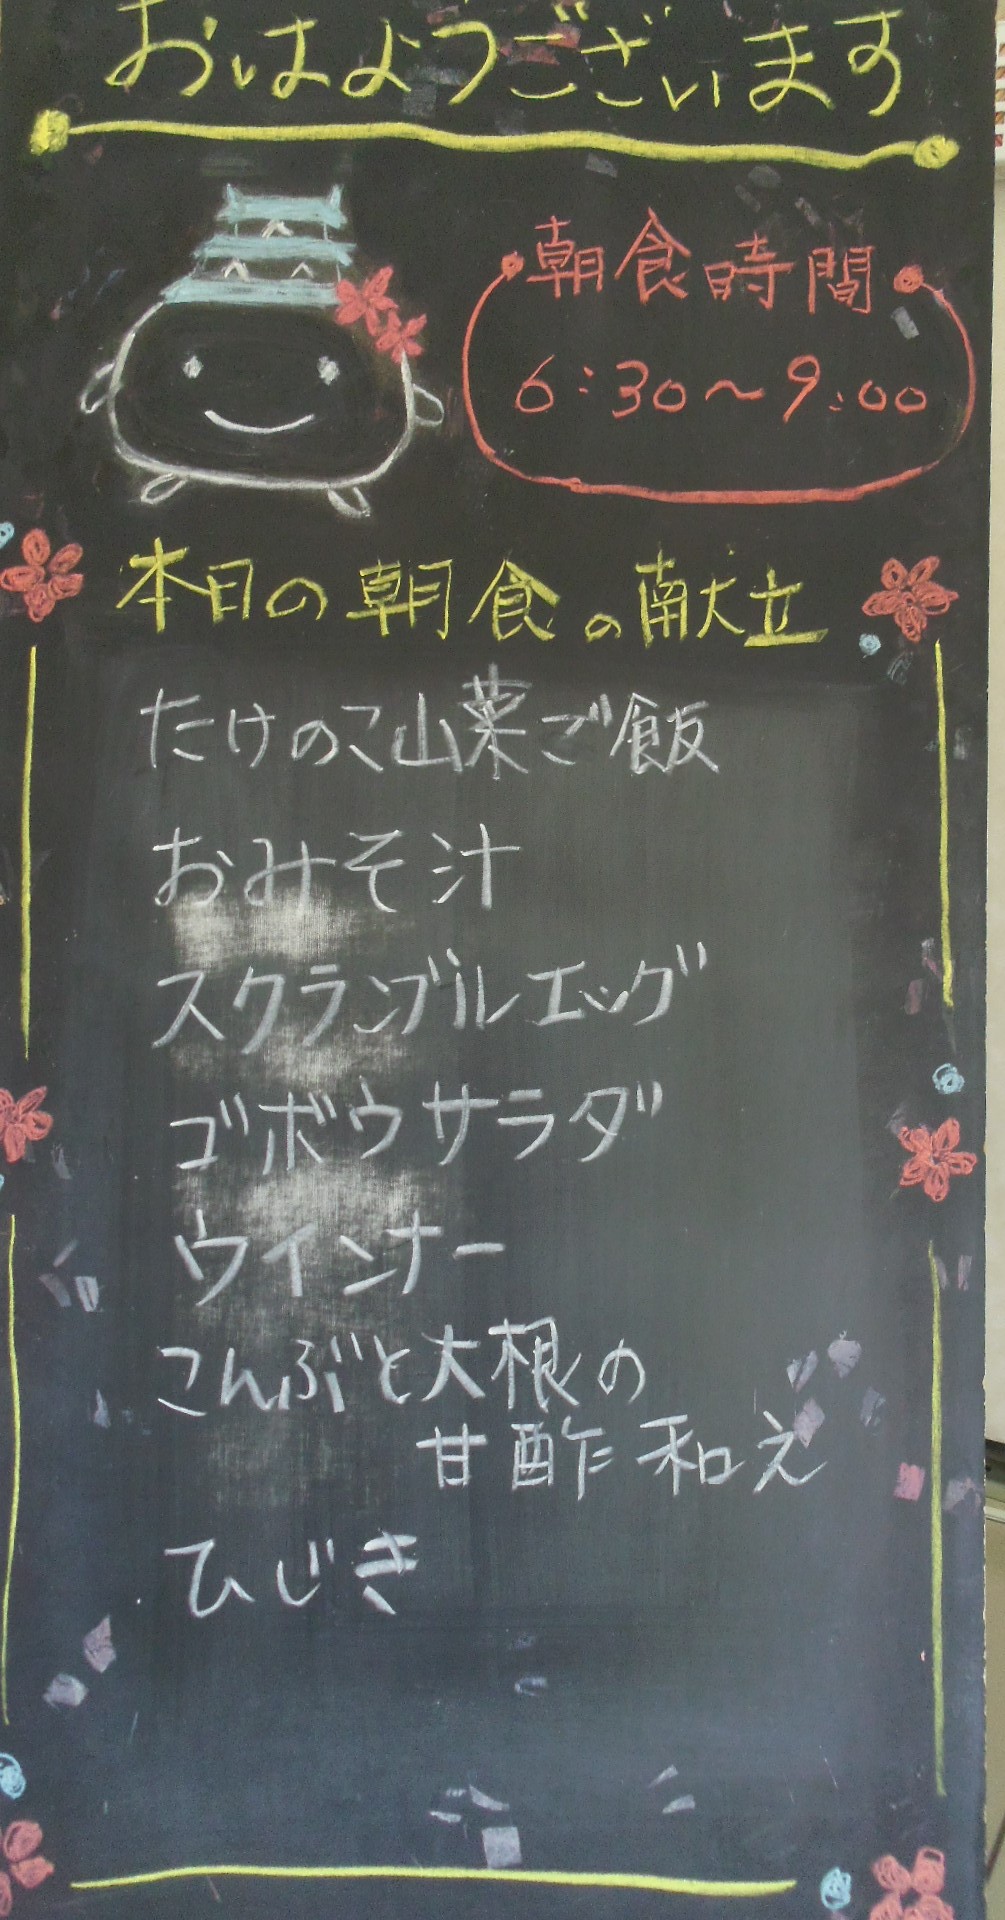 おはようございます
朝食時間
6:30〜9:00
本日の朝食の献立
たけのこ山菜ご飯
おみそ汁
スクランブルエッグ
ゴボウサラダ
ウインナー
こんぶと大根の
甘酢和え
ひじき